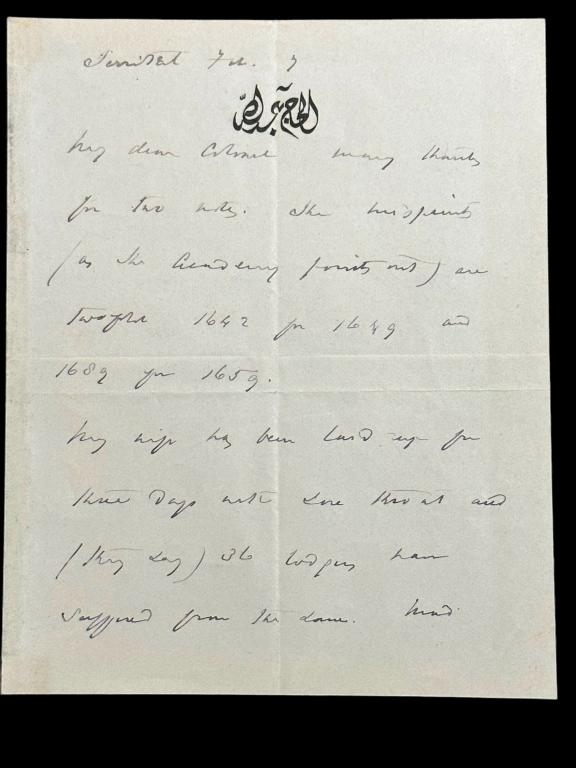 Territet Feb. 7
الحاج عبدالله
My dear Colonel many thanks
for two notes. The misprints
(as the Academy points out) are
twofold 1642 for 1649 and
1689 for 1659.
My wife has been laid up for
three days with sore throat and
(they say) 36 lodgers have
suffered from the same.